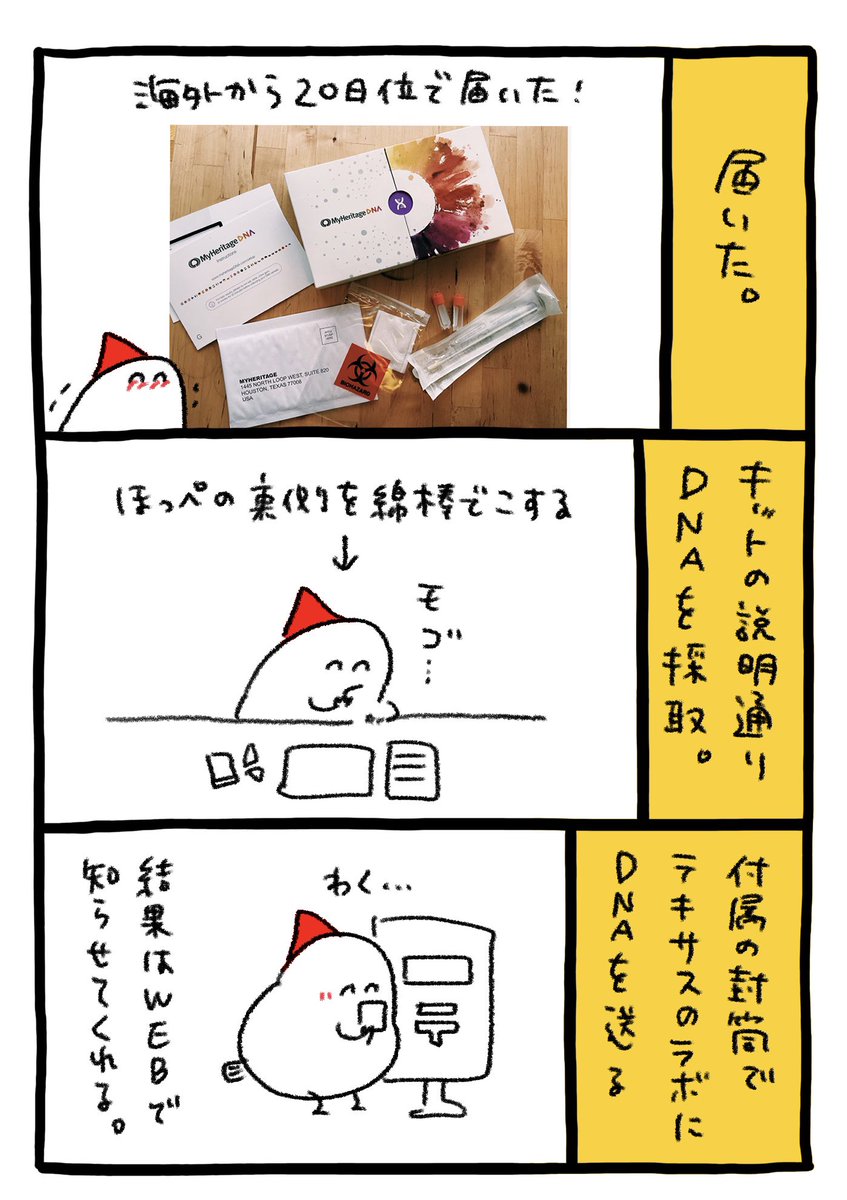 届いた。
海外から20日位で届いた!
MyHeritage DNA
Instructions
MyHeritage DNA
MYHERITAGE
1445 NORTH LOOP WEST, SUITE 820
HOUSTON, TEXAS 77008
USA
BIOHAZARD
キットの説明通り
DNAを採取。
ほっぺの裏側を綿棒でこする
↓
モゴ…
付属の封筒で
テキサスのラボに
DNAを送る
わく…
〒
結果はWEBで
知らせてくれる。